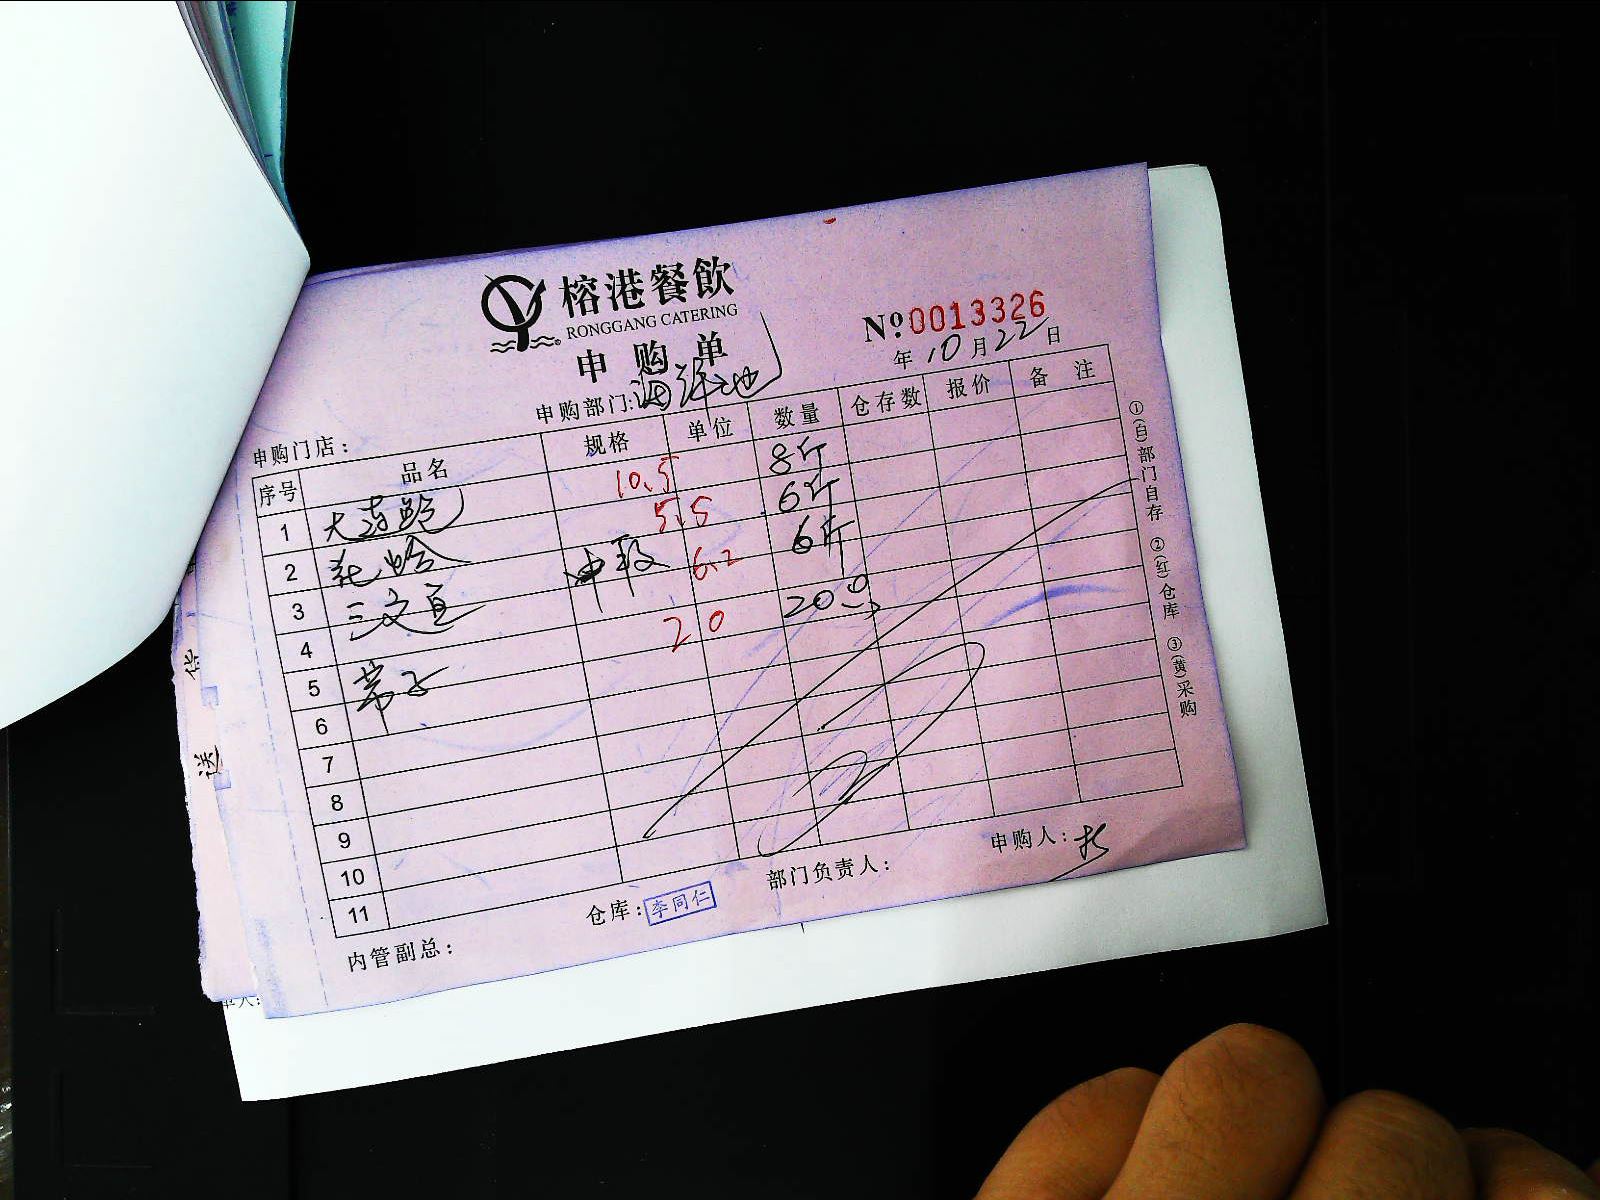 榕港餐飲
RONGGANG CATERING
申购单
№0013326
年10月22日
申购部门:海鲜池
申购门店：
序号 品名 规格 单位 数量 仓存数 报价 备注
1 大连鲍 10.5 8斤
2 花蛤 5.5 6斤
3 三文鱼 中段 6.2 6斤
4 20 20个
5 带子
6
7
8
9
10
11
①(白)部门自存 ②(红)仓库 ③(黄)采购
内管副总：
仓库：李同仁
部门负责人：
申购人：
供
送
单人：